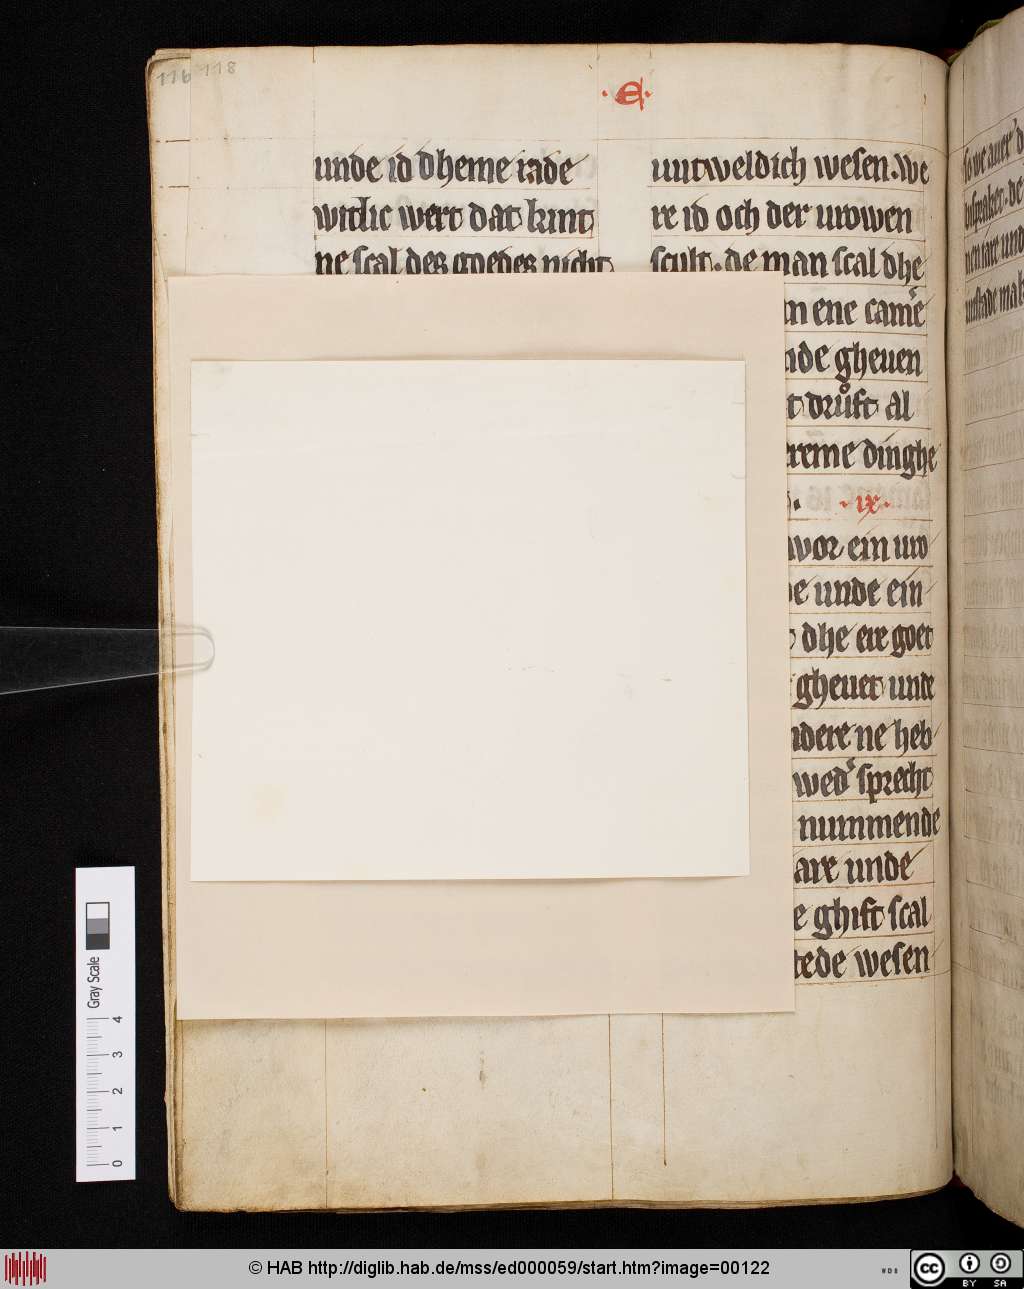 116 118
· e ·
unde id dheme rade
witlic wert dat kint
ne scal des goedes nicht
unitweldich wesen. We
re id och der urowen
scult. de man scal dhe
n ene camˢe
nde gheuen
t druͦft al
ereme dinghe
· ix ·
wor ein uro
e unde ein
dhe ere goet
gheuet unde
ndere ne heb
wedˢ sprecht
nummende
are unde
e ghift scal
tede wesen
so we auer
nen iare und
unstade mak
Gray Scale
0 1 2 3 4
© HAB http://diglib.hab.de/mss/ed000059/start.htm?image=00122
WDB
cc BY SA